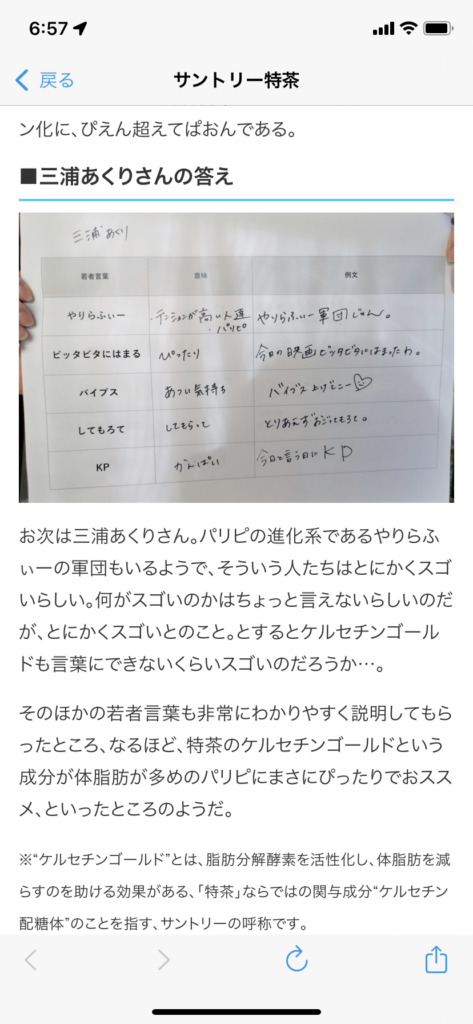 6:57
戻る
サントリー特茶
ン化に、ぴえん超えてぱおんである。
■三浦あくりさんの答え
三浦あくり
若者言葉 意味 例文
やりらふぃー ・テンションが高い人達 ・パリピ やりらふぃー軍団じゃん。
ビッタビタにはまる ぴったり 今日の映画ビッタビタにはまったわ。
バイブス あつい気持ち バイブス上げてこー♡
してもろて してもらって とりあえずおごってもろて。
KP かんぱい 今日と言う日にKP
お次は三浦あくりさん。パリピの進化系であるやりらふ
ぃーの軍団もいるようで、そういう人たちはとにかくスゴ
いらしい。何がスゴいのかはちょっと言えないらしいのだ
が、とにかくスゴいとのこと。とするとケルセチンゴール
ドも言葉にできないくらいスゴいのだろうか…。
そのほかの若者言葉も非常にわかりやすく説明してもら
ったところ、なるほど、特茶のケルセチンゴールドという
成分が体脂肪が多めのパリピにまさにぴったりでおスス
メ、といったところのようだ。
※“ケルセチンゴールド”とは、脂肪分解酵素を活性化し、体脂肪を減
らすのを助ける効果がある、「特茶」ならではの関与成分“ケルセチン
配糖体”のことを指す、サントリーの呼称です。